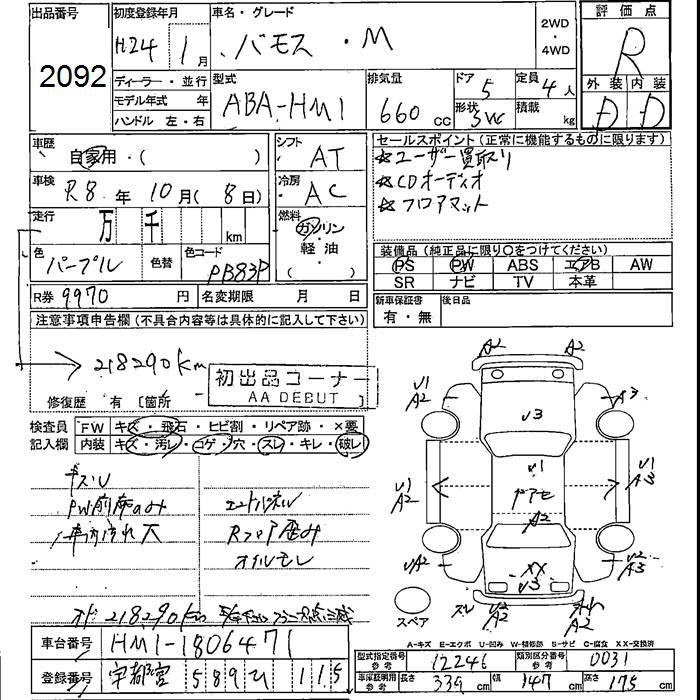 出品番号
2092
初度登録年月
H24 1月
車名・グレード
バモス・M
2WD
・
4WD
評価点
R
外装 内装
D D
ディーラー・並行
モデル年式 年
ハンドル 左・右
型式
ABA-HM1
排気量
660 cc
ドア 5
形状 5W
定員 4人
積載 kg
車歴
自家用・( )
車検
R8年 10月( 8日)
走行
万 千 km
色
パープル
色替
色コード
PB83P
R券 9970 円
名変期限 月 日
シフト
AT
冷房
AC
燃料
ガソリン
・
軽油
( )
セールスポイント(正常に機能するものに限ります)
☆ユーザー買取り
☆CDオーディオ
☆フロアマット
装備品(純正品に限り○をつけてください)
PS PW ABS エアB AW
SR ナビ TV 本革
新車保証書
有・無
後日品
注意事項申告欄(不具合内容等は具体的に記入して下さい)
→218290km
初出品コーナー
AA DEBUT
修復歴 有 〔箇所
検査員
記入欄
FW キズ・飛石・ヒビ割・リペア跡・×要
内装 キズ・汚レ・コゲ・穴・スレ・キレ・破レ
エンドパネル
Rフロア歪み
オイルモレ
218290km
A2 A2
U1
A2
A3
U3
U1
A2
U1
ドアモ
A2
U1
A3
UA2
XX
U3
U2
A3
スペア
U2
A2
A-キズ E-エクボ U-凹み W-補修跡 S-サビ C-腐食 XX-交換済
車台番号 HM1-1806471
登録番号 宇都宮 589 ひ 115
型式指定番号
参考
12246
類別区分番号
参考
0031
車庫証明用
参考
長さ 339 cm
幅 147 cm
高さ 175 cm